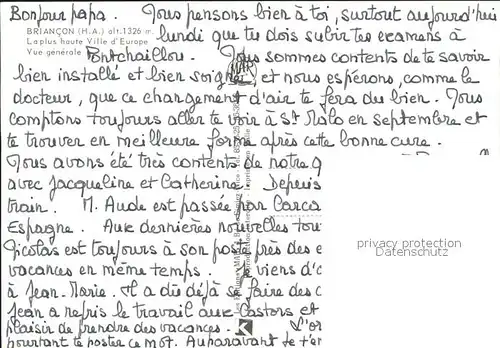 Bonjour papa. Nous pensons bien à toi, surtout aujourd'hui
BRIANÇON (H.A.) alt. 1326 m.
lundi que tu dois subir tes examens à
La plus haute Ville d'Europe
Vue générale
Pontchaillou. Nous sommes contents de te savoir
bien installé et bien soigné et nous espérons, comme le
docteur, que ce changement d'air te fera du bien. Nous
comptons toujours aller te voir à St Malo en septembre et
te trouver en meilleure forme après cette bonne cure.
Nous avons été très contents de notre
avec Jacqueline et Catherine. Depuis
train. M. Aude est passée par Carca
Espagne. Aux dernières nouvelles tou
Nicolas est toujours à son poste près des e
vacances en même temps. Je viens d'
à Jean-Marie. Il a dû déjà se faire des c
Jean a repris le travail aux Castors et
plaisir de prendre des vacances. L'or
pourtant te poster ce mot. Auparavant je t'er
privacy protection
Datenschutz